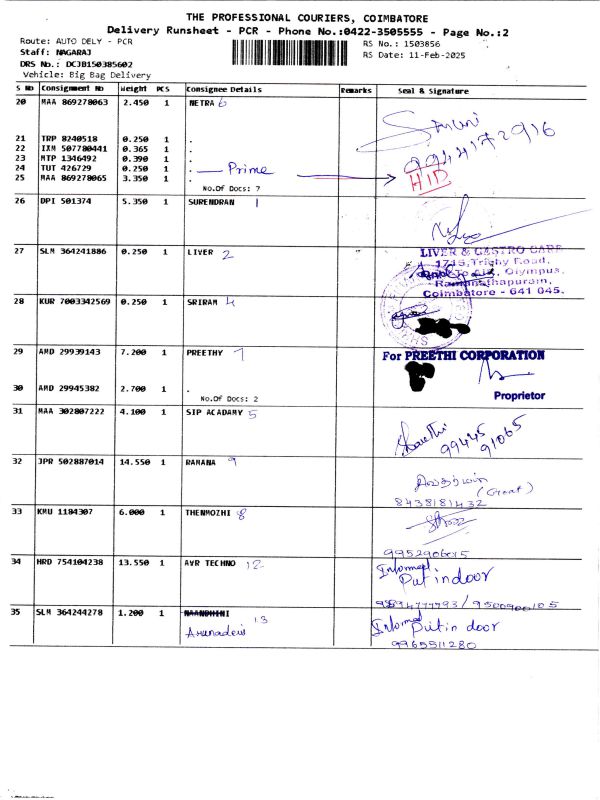 THE PROFESSIONAL COURIERS, COIMBATORE
Delivery Runsheet - PCR - Phone No.:0422-3505555 - Page No.:2
Route: AUTO DELY - PCR
Staff: NAGARAJ
DRS No.: DCJB150385602
Vehicle: Big Bag Delivery
RS No.: 1503856
RS Date: 11-Feb-2025
S No Consignment No Weight PCS Consignee Details Remarks Seal & Signature
20 MAA 869278063 2.450 1 NETRA 6
9944172916
21 TRP 8240518 0.250 1 .
22 IXM 507780441 0.365 1 .
23 MTP 1346492 0.390 1 .
24 TUT 426729 0.250 1 . Prime
25 MAA 869278065 3.350 1 . H/D
No.Of Docs: 7
26 DPI 501374 5.350 1 SURENDRAN 1
27 SLM 364241886 0.250 1 LIVER 2
LIVER & GASTRO CARE
1715, Trichy Road,
Olympus,
Ramanathapuram,
Coimbatore - 641 045.
28 KUR 7003342569 0.250 1 SRIRAM 4
29 AMD 29939143 7.200 1 PREETHY 7
For PREETHI CORPORATION
30 AMD 29945382 2.700 1 .
No.Of Docs: 2
Proprietor
31 MAA 302807222 4.100 1 SIP ACADAMY 5
99445
91065
32 JPR 502887014 14.550 1 RAMANA 9
8438181432
33 KMU 1184307 6.000 1 THENMOZHI 8
34 HRD 754104238 13.550 1 AVR TECHNO 12
Informed.
Put indoor
35 SLM 364244278 1.200 1 13
Arunadevi
Informed
Put in door
9965511280